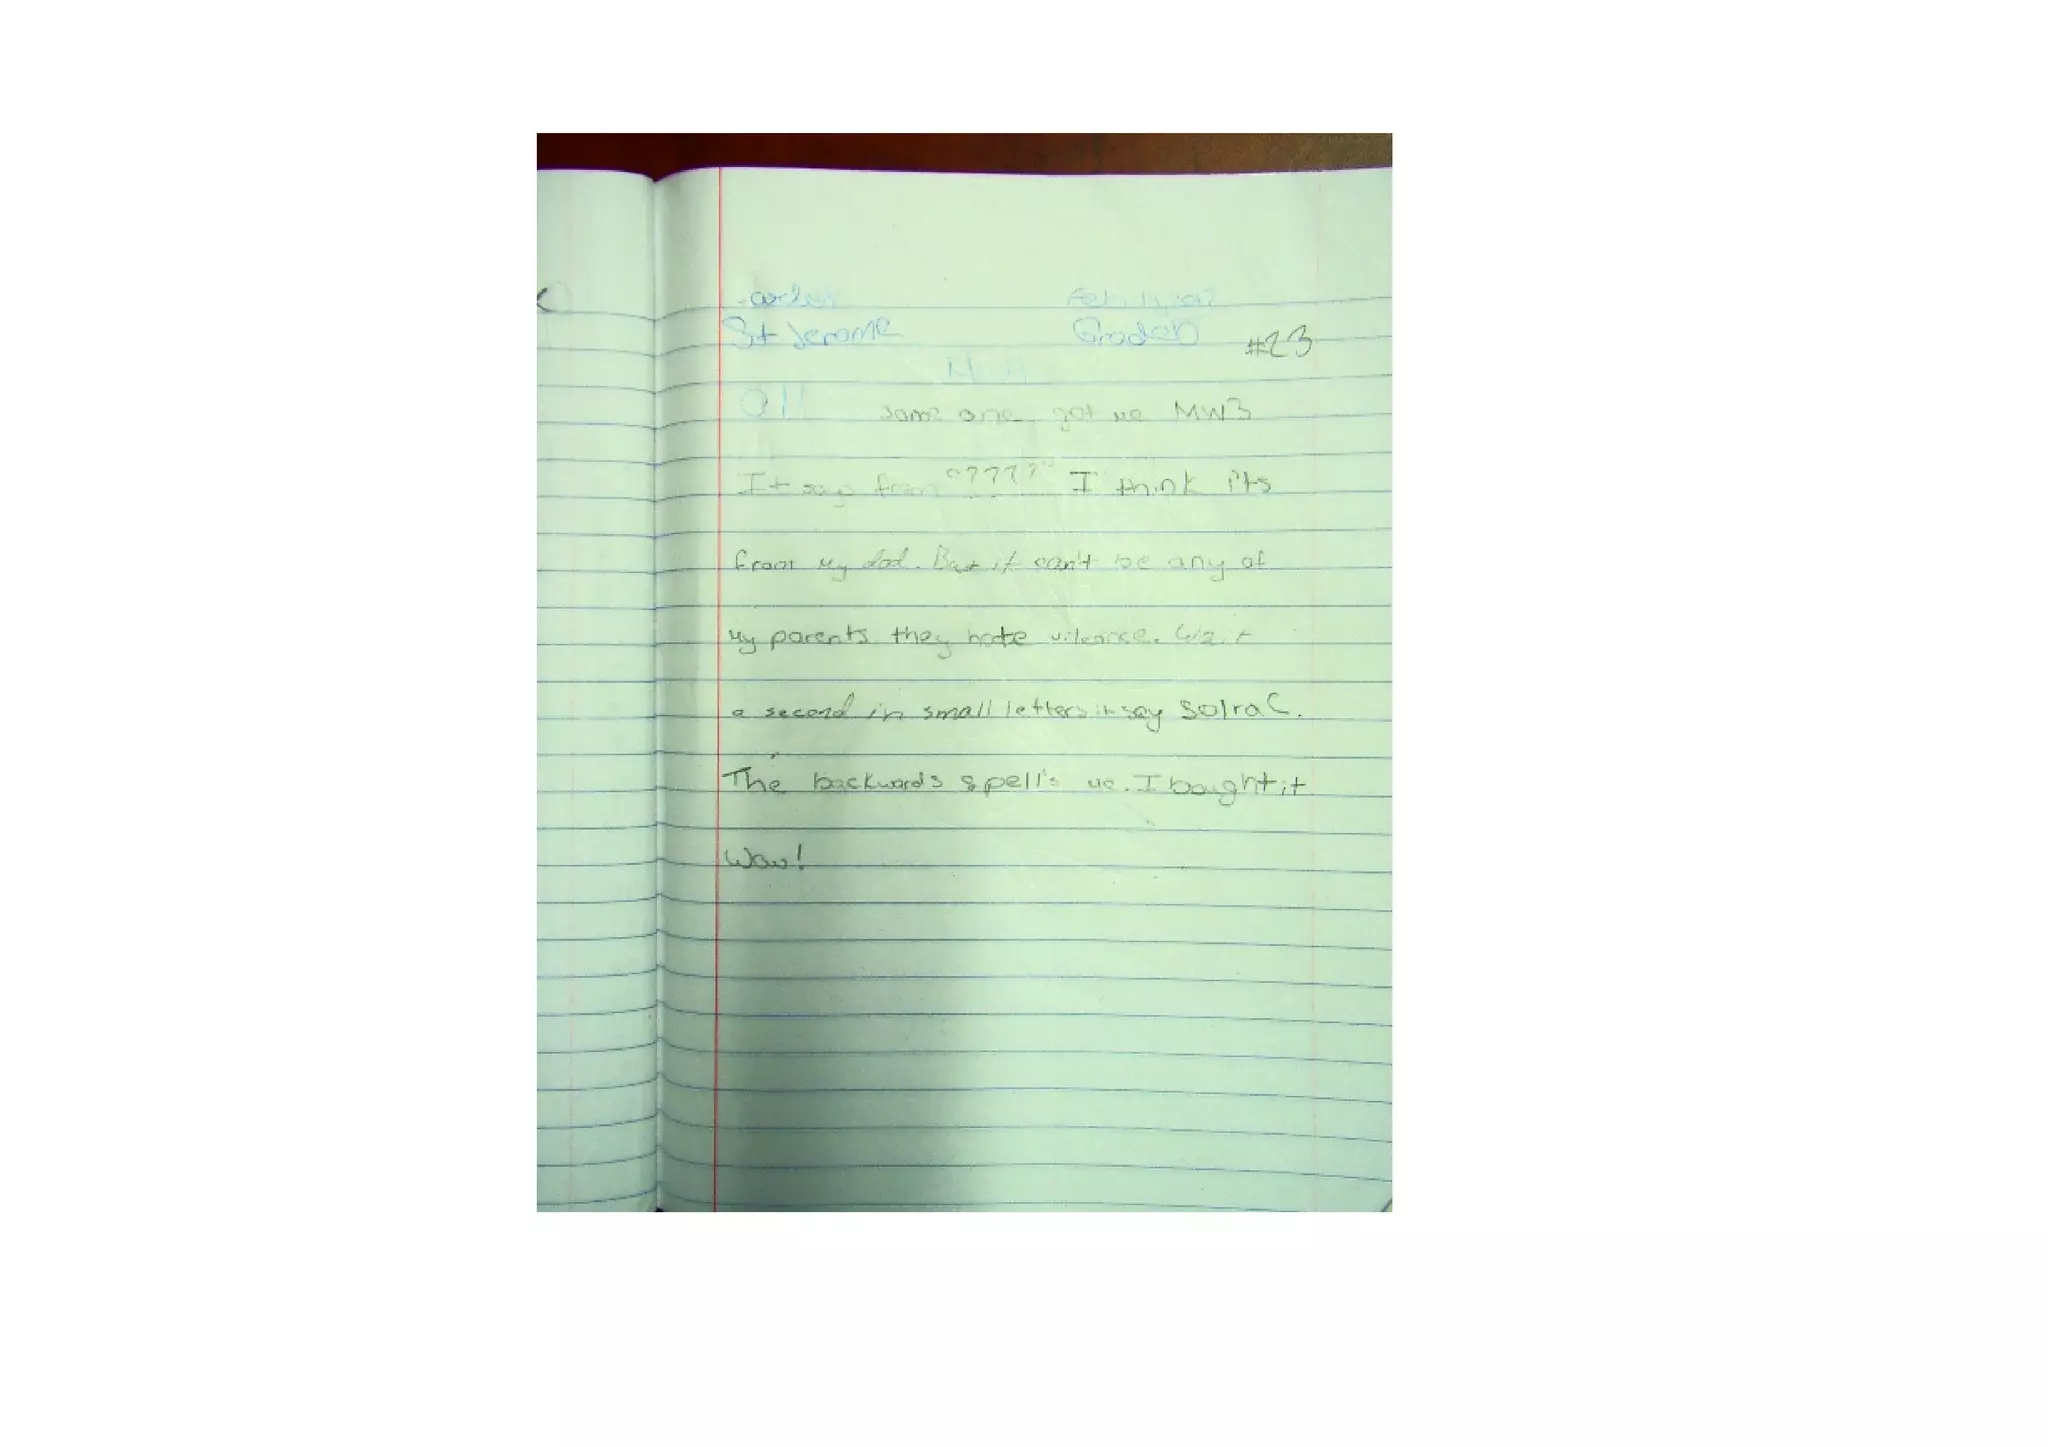 Carlos Feb. 14, 2012
St Jerome #23
011 some one got me MW3
It says from "????" I think it's
from my dad. But it can't be any of
my parents they hate vileance. Wait
a second in small letters it say SolraC.
The backwards spell's me. I bought it
Wow!